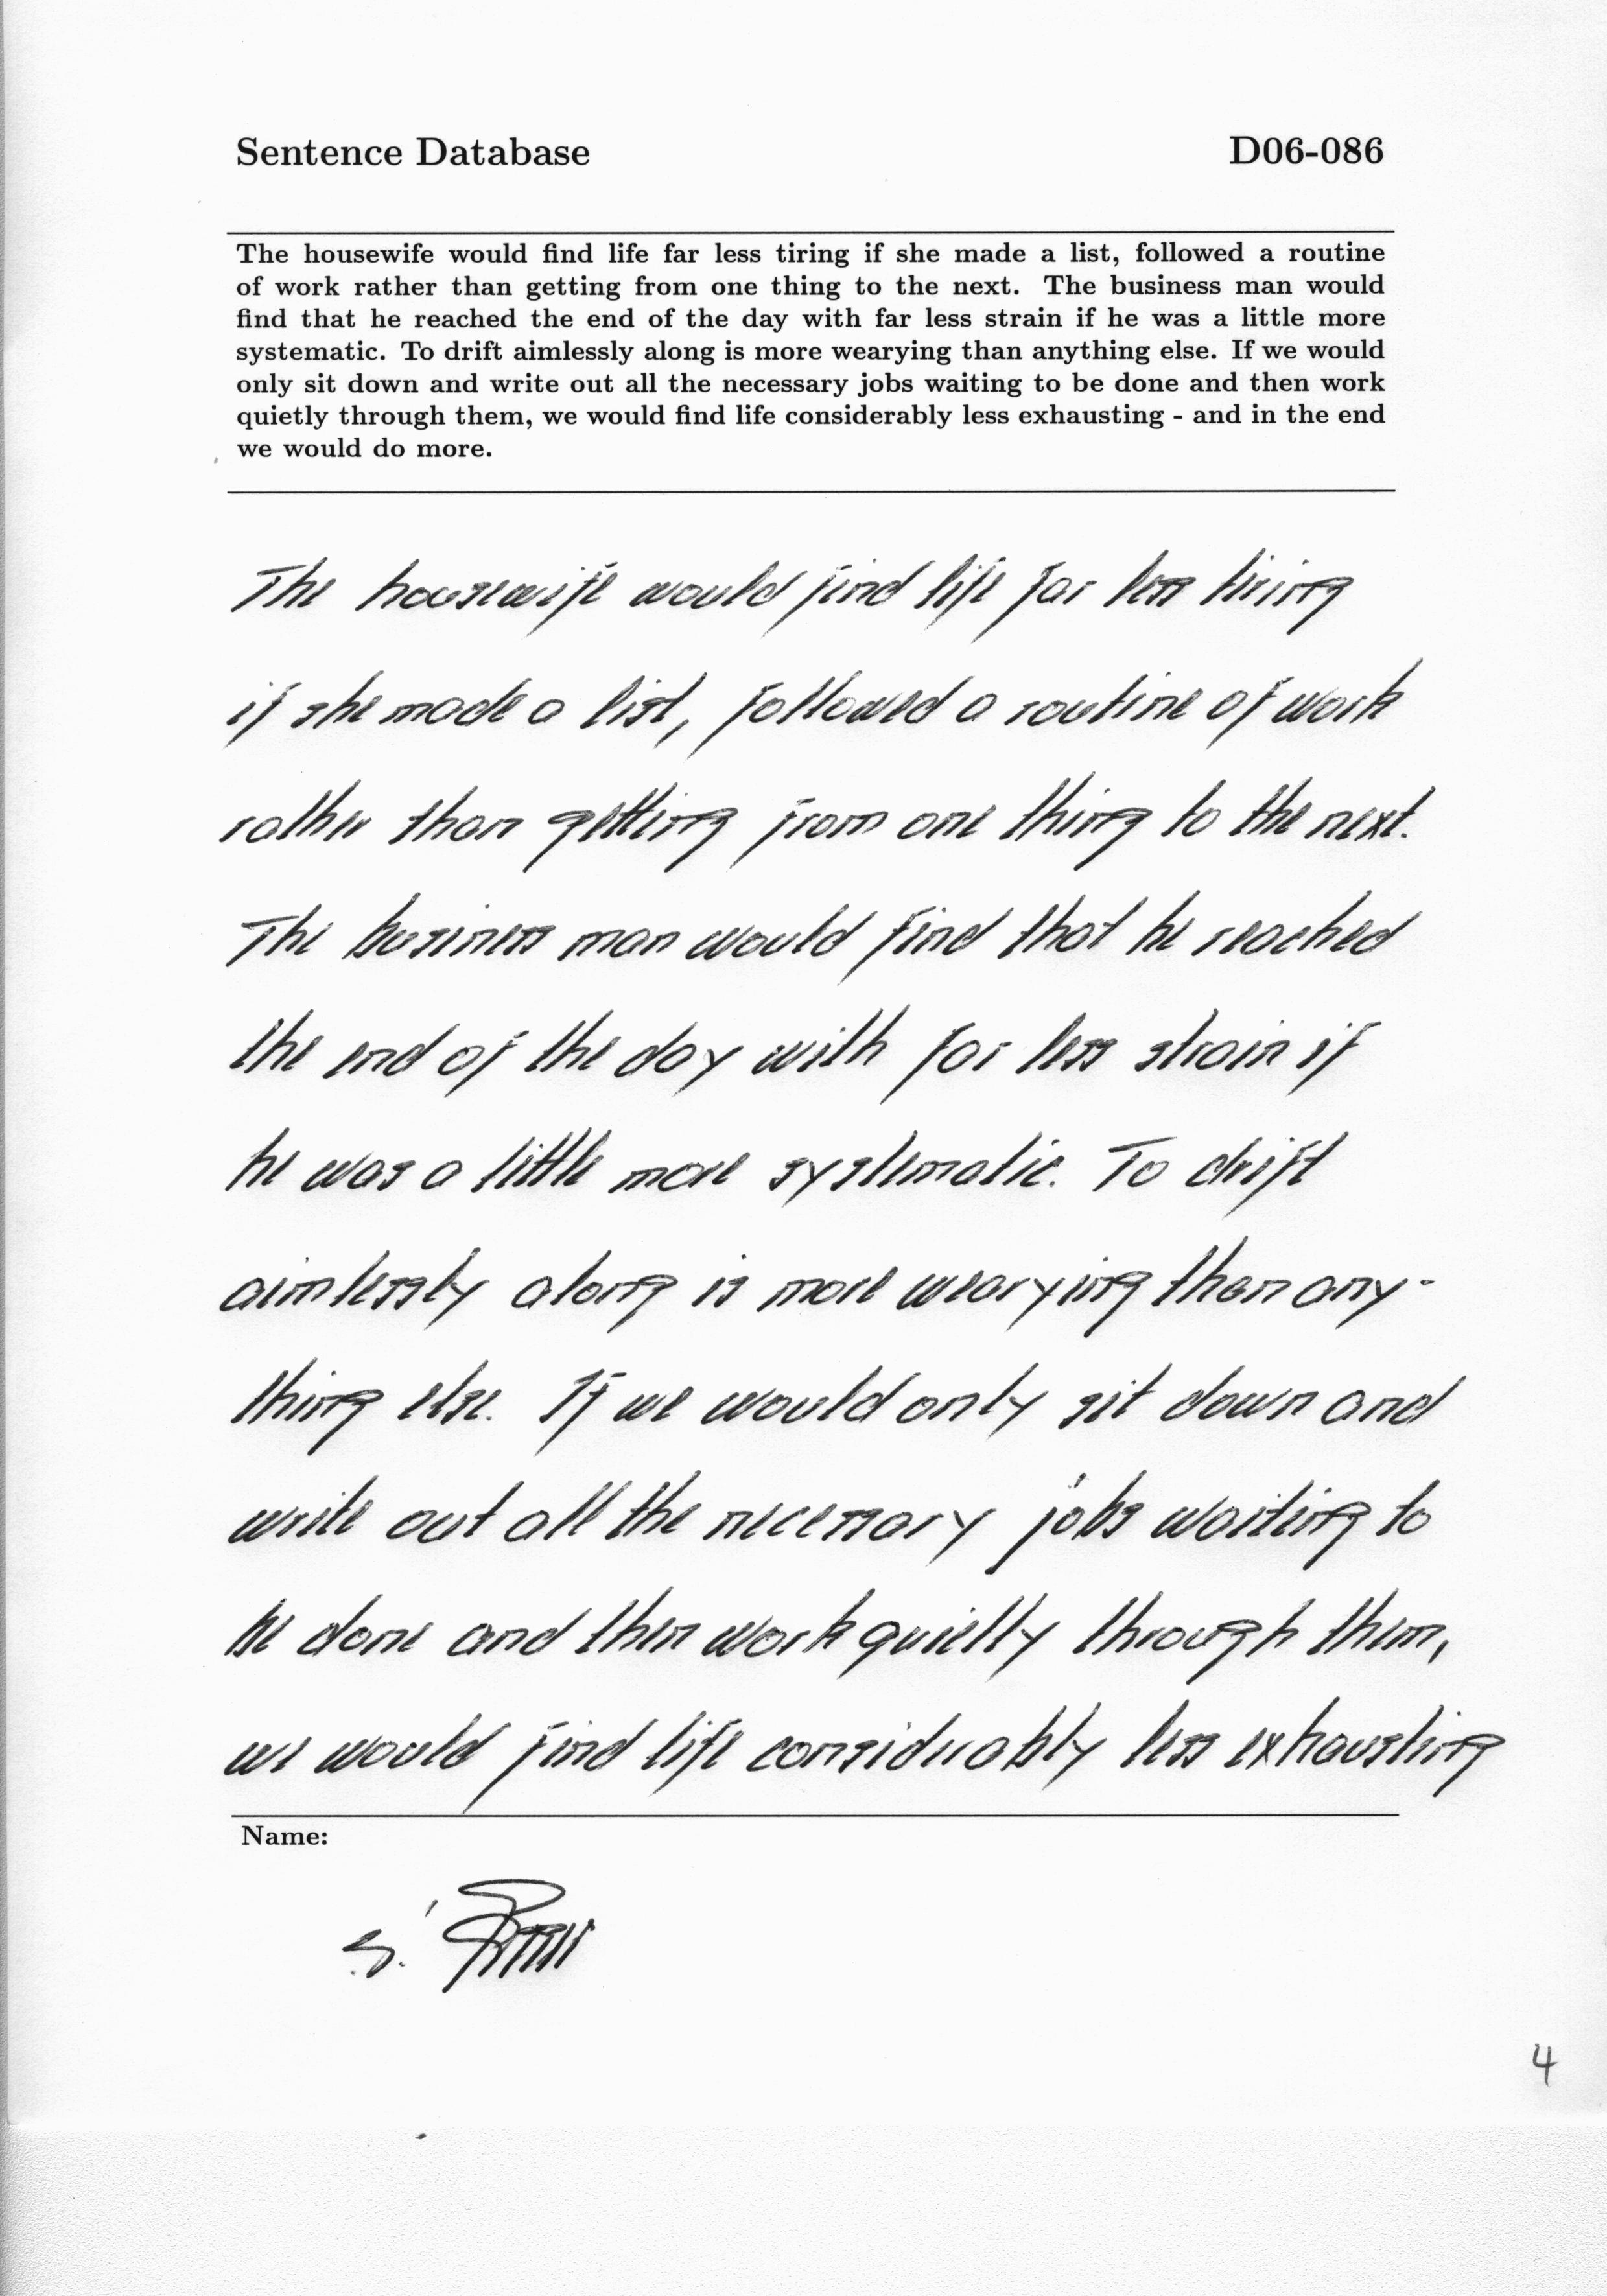 Sentence Database D06-086
The housewife would find life far less tiring if she made a list, followed a routine
of work rather than getting from one thing to the next. The business man would
find that he reached the end of the day with far less strain if he was a little more
systematic. To drift aimlessly along is more wearying than anything else. If we would
only sit down and write out all the necessary jobs waiting to be done and then work
quietly through them, we would find life considerably less exhausting - and in the end
we would do more.
The housewife would find life far less tiring
if she made a list, followed a routine of work
rather than getting from one thing to the next.
The business man would find that he reached
the end of the day with far less strain if
he was a little more systematic. To drift
aimlessly along is more wearying than any-
thing else. If we would only sit down and
write out all the necessary jobs waiting to
be done and then work quietly through them,
we would find life considerably less exhausting
Name:
S.
4